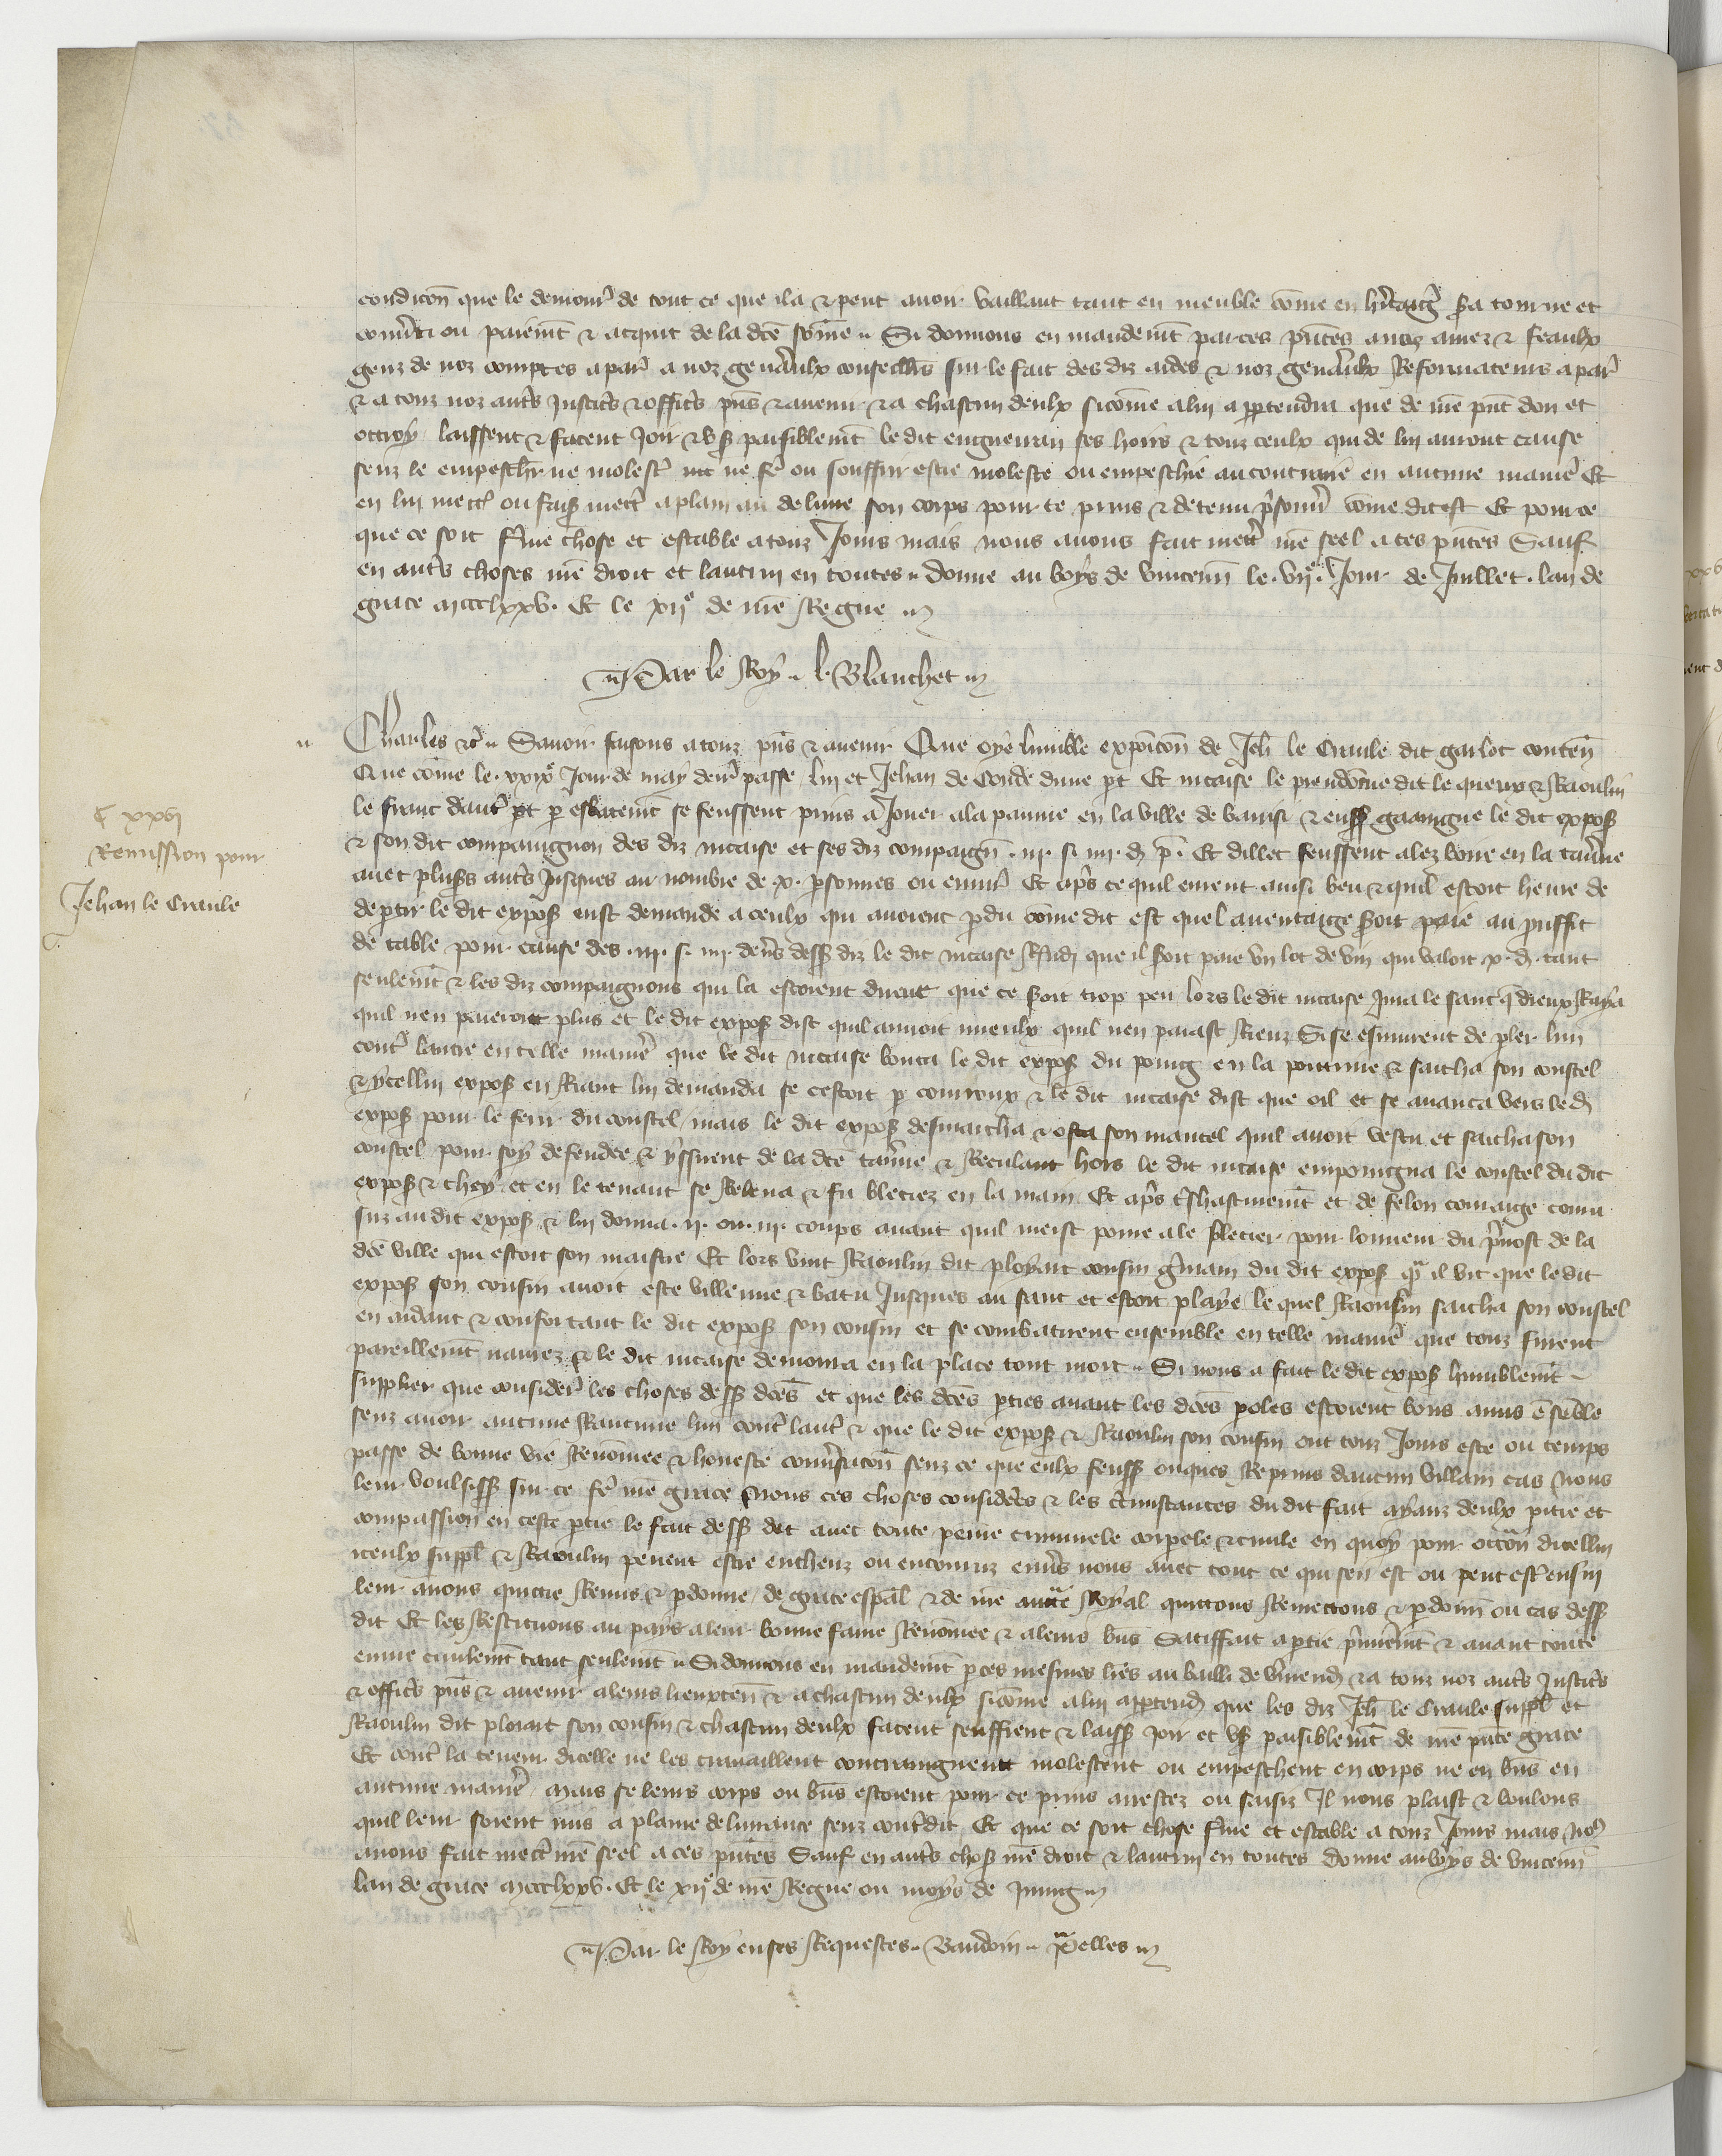 condicōn que le demour̄ de tout ce que il a ⁊ peut auoir vaillant tant en meuble cōme en hr̄itaiḡ sa tourne et
conūti ou paiemt̄ ⁊ acquit de la dcē sōme Si donnons en mandemt̄ par ces pn̄tes a noz amez ⁊ feaulx
genz de noz comptes a par̄ a noz gen̄aulx conseill̄s sur le fait des diz aides ⁊ noz gen̄aulx Reformateurs a par̄
⁊ a touz noz aut̄s Justic̄s ⁊ offic̄s pn̄s ⁊ auenir ⁊ a chascun deulx sicōme a lui appartendra que de nr̄e pn̄t don et
ottroy laissent ⁊ facent Joir ⁊ vs̄ paisiblemt̄ le dit enguerran ses hoirs ⁊ touz ceulx qui de lui auront cause
senz le empesch̄r ne molest̄ ne fē ou souffrir estre moleste ou empeschie au contraire en aucune manie᷑ Et
en lui mectt̄ ou fais̄ mectt̄ a plain au deliure son corps pour ce prins ⁊ detenu p̄sonn̄ cōme dit est Et pour ce
que ce soit ferme chose et estable a touz Jours mais nous auons fait mett̄ nr̄e seel a ces pn̄tes Sauf
en aut̄s choses nr̄e droit et lautrui en toutes donne au boys de vincenn̄ le .vijᵉ. Jour de Juillet . lan de
grace mccclxxv. Et le xijᵉ de nr̄e Regne
Par le Roy . l. Blanchet
Charles ⁊c̄ Sauoir faisons a touz pn̄s ⁊ auenir Que oye lumble exposicōn de Jeh̄ le Craule dit garlot conten̄
Que cōme le .xxixᵉ Jour de may derr̄ passe lui et Jehan de Conde dune pt̄ Et nicaise le preudōme dit le queux ⁊ Raoulin
le franc daut̄ pt̄ p̄ esbatemt̄ se feussent prins a Jouer a la paume en la ville de ⁊ euss̄ gaaingne le dit expos̄
⁊ son dit compaingnon des diz nicaise et ses diz compaign̄ .iij. s. iiij. d. p̄. Et dillec feussent alez boire en la tau̅ne
auec plus̄s aut̄s Jusques au nombre de .x. p̄sonnes ou enuir̄ Et ap̄s ce quil eurent ainsi beu ⁊ quil estoit heure de
dep̄tir le dit expos̄ eust demande a ceulx qui auoient p̄du cōme dit est quel auentaige soit paie au prouffit
de table pour cause des .iij. s. iiij. den̄s dess̄ diz le dit nicaise Rn̄di que il soit paie vn lot de vin qui valoit .x. d. tant
seulemt̄ ⁊ les diz compaignons qui la estoient dirent que ce soit trop peu lors le dit nicaise Jura le sanc q̄ dieux Raya
quil nen paieroit plus et le dit expos̄ dist quil aimoit mieulx quil nen paiast Rienz Si se esmurent de p̄ler lun
cont̄ lautre en telle manie᷑ que le dit nicaise bouta le dit expos̄ du poing en la poitrine ⁊ saicha son coustel
⁊ ycellui expos̄ en Riant lui demanda se cestoit p̄ courroux ⁊ le dit nicaise dist que oil et se auanca vers led̄
expos̄ pour le ferir du coustel / mais le dit expos̄ desmarcha ⁊ osta son mantel quil auoit vestu et saicha son
coustel pour soy defendre ⁊ yssirent de la dcē tau̅ne ⁊ Reculant hors le dit nicaise empoingna le coustel du dit
expos̄ ⁊ chey et en le tenant se Releua ⁊ fu bleciez en la main Et ap̄s t̄shastiuemt̄ et de felon couraige couru
sur au dit expos̄ ⁊ lui donna .ij. ou .iij. coups auant quil meist peine a le blecier pour lonneur du p̄uost de la
dcē ville qui estoit son maistre Et lors vint Raoulin dit ployart cousin ḡmain du dit expos̄ qn̄t il vit que le dit
expos̄ son cousin auoit este villenne ⁊ batu Jusques au sanc et estoit playe le quel Raoulin saicha son coustel
en aidant ⁊ confortant le dit expos̄ son cousin et se combatirent ensemble en telle manie᷑ que touz furent
pareillemt̄ naurez ⁊ le dit nicaise demoura en la place tout mort Si nous a fait le dit expos̄ humblemt̄
supplier que consider̄ les choses dess̄ dcēs et que les dcēs p̄ties auant les dcēs p̄oles estoient bons amis ēsēble
senz auoir aucune Rancune lun cont̄ laut̄ ⁊ que le dit expos̄ ⁊ Raoulin son cousin ont touz Jours este ou temps
passe de bonne vie Renōmee ⁊ honeste conūsacōn senz ce que eulx feuss̄ onques Reprins daucun villain cas nous
leur voulsiss̄ sur ce fē nr̄e grace Nous ces choses considerees ⁊ les circunstances du dit fait ayanz deulx pitie et
compassion en ceste p̄tie le fait dess̄ dit auec toute peine criminele corpele ⁊ ciuile en quoy pour occōn dicellui
iceulx suppl̄ ⁊ Raoulin peuent estre encheuz ou encouruz enu̅s nous auec tout ce qui sen est ou peut est̄ ensui
leur auons quictie Remis ⁊ p̄donne / de grace esp̄al ⁊ de nr̄e auct̄e Royal quittons Remettons ⁊ p̄donn̄ ou cas dess̄
dit Et les Restituons au pays a leur bonne fame Renōmee ⁊ a leurs bn̄s Satiffait a p̄tie p̄mie᷑mt̄ ⁊ auant toute
euure ciuilemt̄ tant seulemt̄ Si donnons en mandemt̄ p̄ ces mesmes lr̄es au bailli de v̄mend̄ ⁊ a touz noz aut̄s Justic̄s
⁊ offic̄s pn̄s ⁊ auenir a leurs lieuxten̄ ⁊ a chascun deulx sicōme a lui app̄tend̄ que les diz Jeh̄ le Craule suppl̄ et
Raoulin dit ploiart son cousin ⁊ chascun deulx facent seuffrent ⁊ laiss̄ Joir et vs̄ paisiblemt̄ de nr̄e pn̄te grace
Et cont̄ la teneur dicelle ne les trauaillent contraingnent molestent ou empeschent en corps ne en bn̄s en
aucune manie᷑ / Mais se leurs corps ou bn̄s estoient pour ce prins arrestez ou saisiz Il nous plaist ⁊ voulons
quil leur soient mis a plaine deliurance senz cont̄dit Et que ce soit chose ferme et estable a touz Jours mais noᷣ
auons fait mectt̄ nr̄e seel a ces pn̄tes Sauf en aut̄s chos̄ nr̄e droit ⁊ lautrui en toutes donne au boys de vincenn̄
lan de grace mccclxxv. Et le xijᵉ de nr̄e Regne ou moys de Juing
Par le Roy en ses Requestes . Baudoin . p̄elles
C xxvj
Remission pour
Jehan le Craule